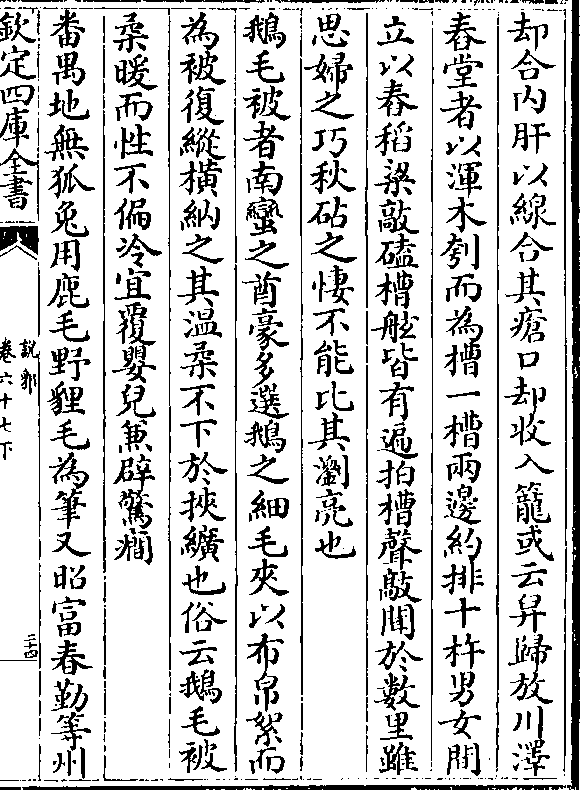 却合内肝以線合其瘡口却收入籠或云舁歸放川澤
舂堂者以渾木刳而為槽一槽兩邊約排十杵男女間
立以舂稻粱敲磕槽舷皆有遍拍槽聲敲聞於數里雖
思婦之巧秋砧之悽不能比其瀏亮也
鵝毛被者南蠻之酋豪多選鵝之細毛夾以布帛絮而
為被復縱横納之其温柔不下於挾纊也俗云鵝毛被
柔暖而性不偏冷宜覆嬰兒兼辟驚癇
番禺地無狐兔用鹿毛野貍毛為筆又昭富春勤等州
欽定四庫全書
説郛
卷六十七下
三十四